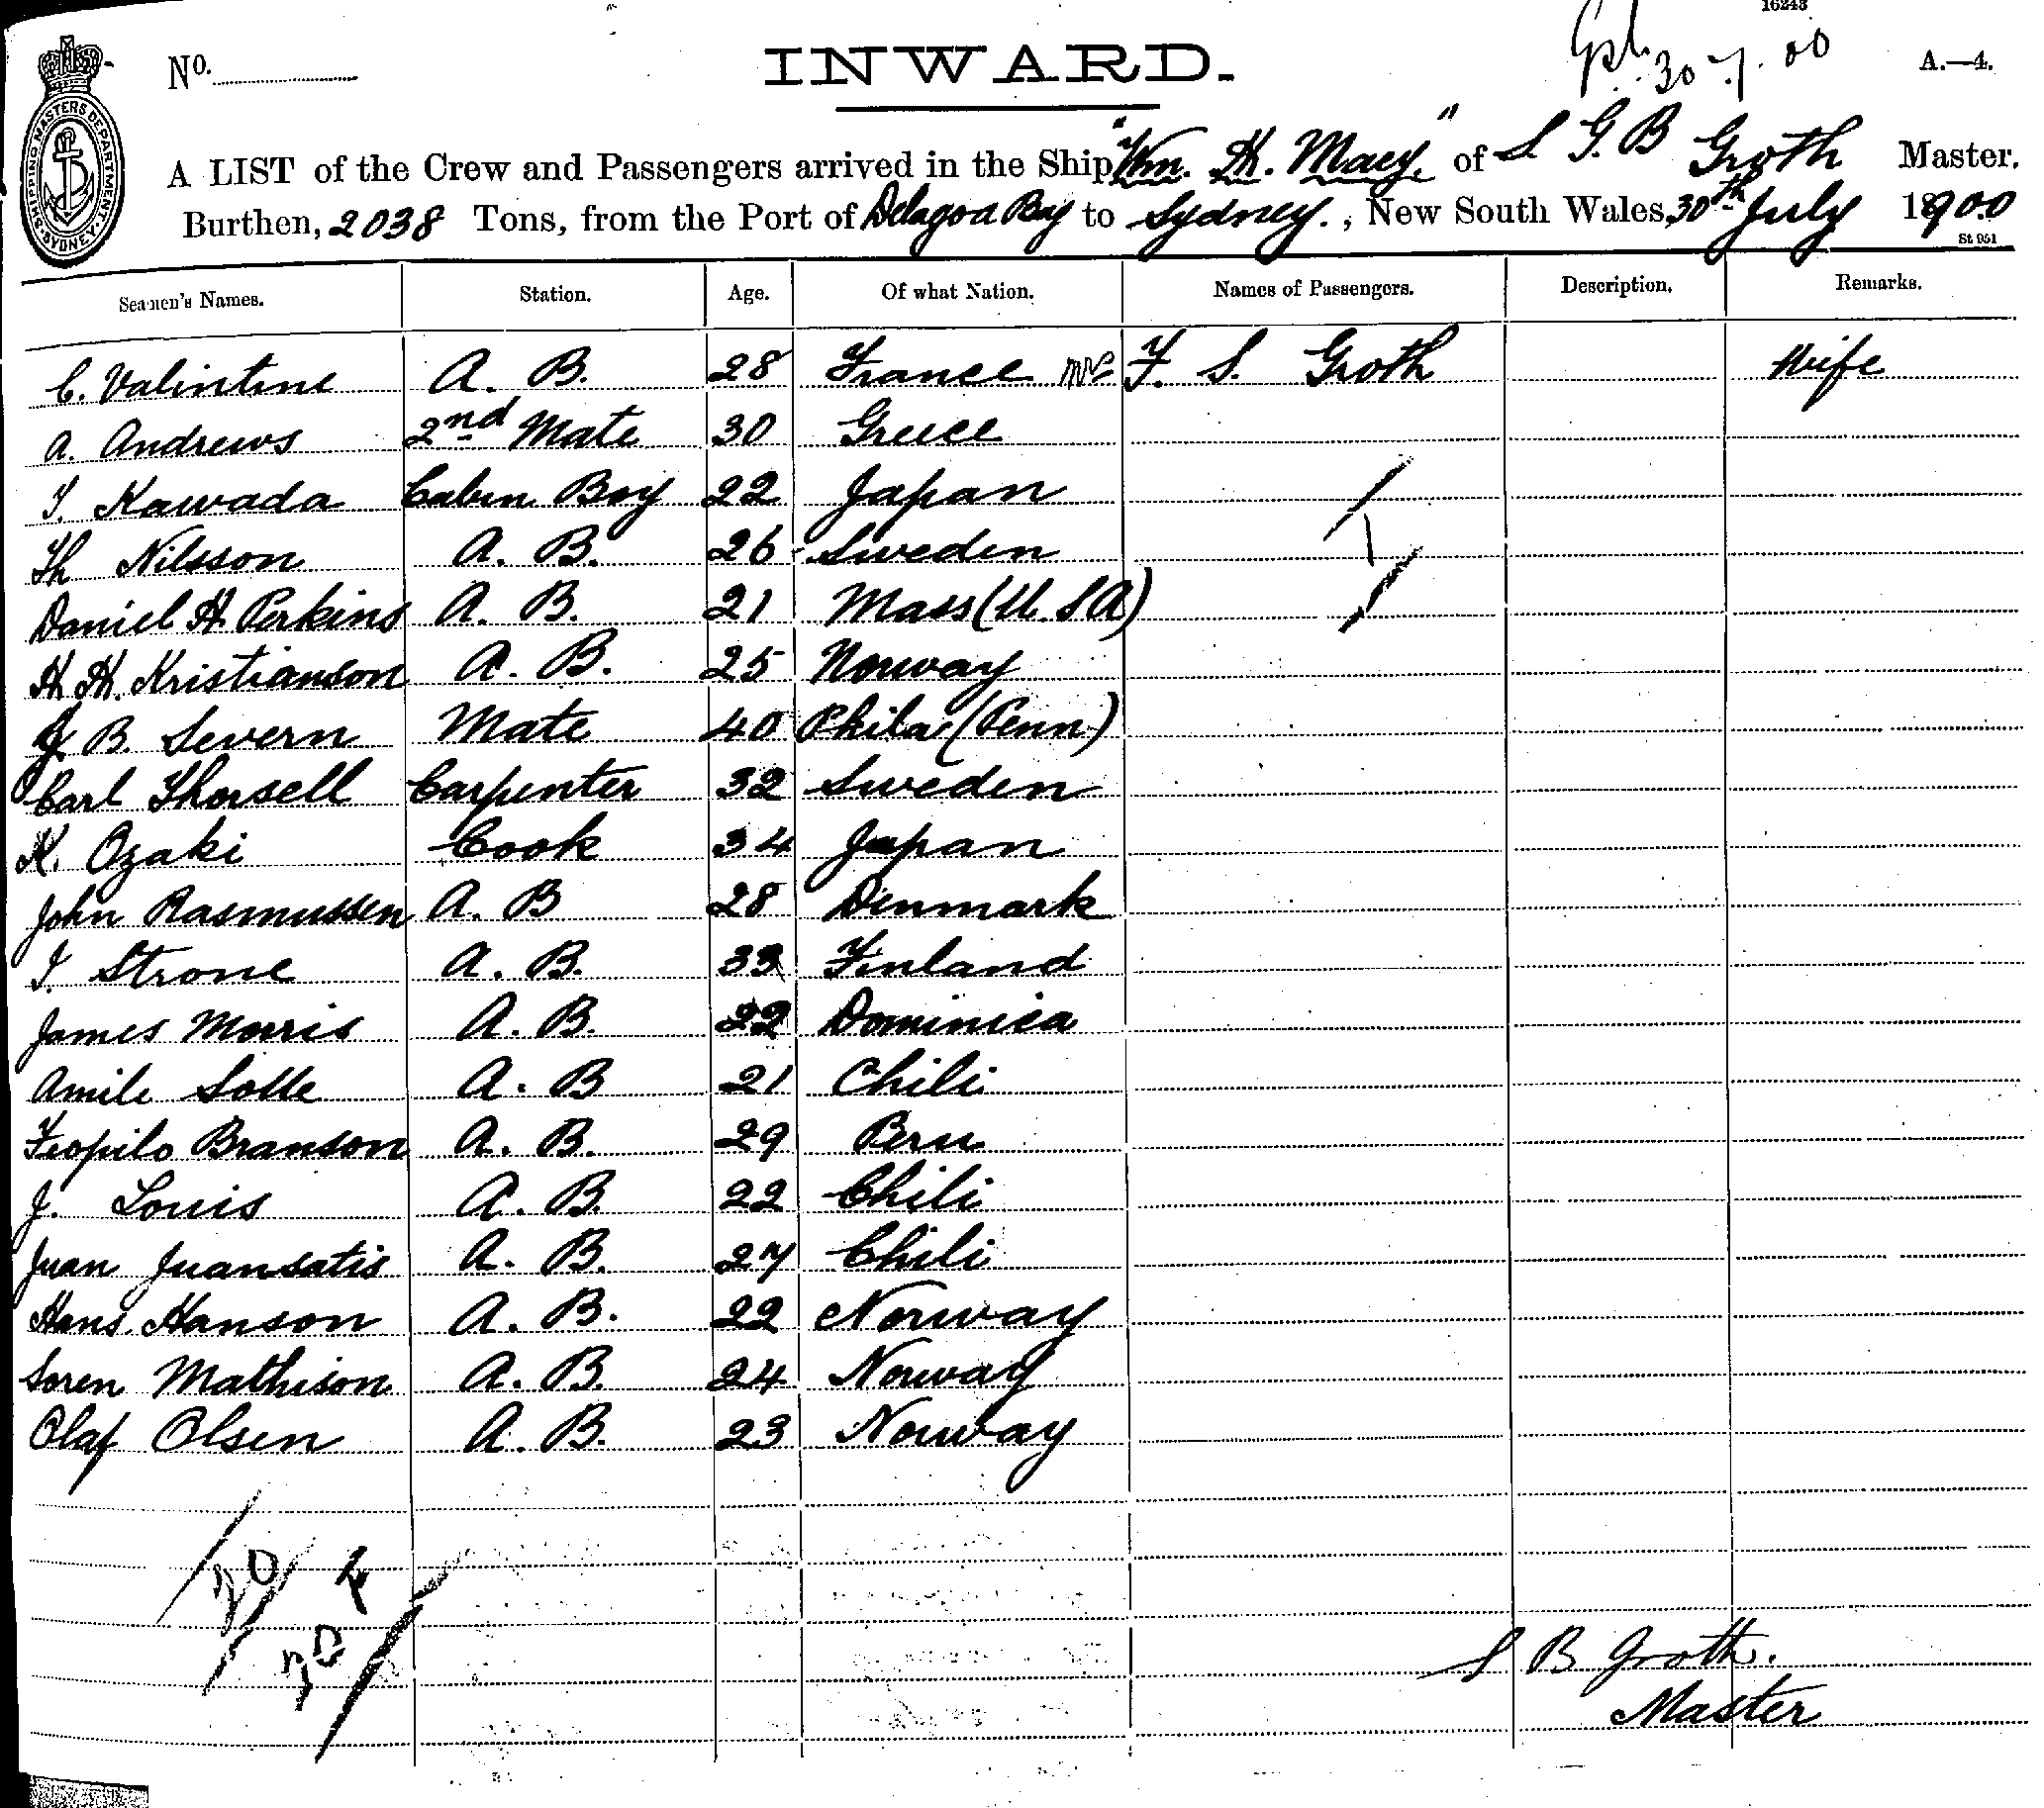 16243
No.
INWARD.
30.7.00
A.—4.
SHIPPING MASTERS DEPARTMENT. SYDNEY.
A LIST of the Crew and Passengers arrived in the Ship "Wm. H. Macy." of S G. B Groth Master.
Burthen, 2038 Tons, from the Port of Delagoa Bay to Sydney., New South Wales, 30th July 1900
St 951
Seamen's Names. Station. Age. Of what Nation. Names of Passengers. Description. Remarks.
C. Valintine A. B. 28 France Mrs F. S. Groth Wife
A. Andrews 2nd Mate 30 Greece
T. Kawada Cabin Boy 22 Japan
Th Nilsson A. B. 26 Sweden
Daniel H. Perkins A. B. 21 Mass (U. S A)
H. H. Kristianson A. B. 25 Norway
J B. Severn Mate 40 Phila (Penn)
Carl Thorsell Carpenter 32 Sweden
K. Ozaki Cook 34 Japan
John Rasmussen A. B 28 Denmark
I. Strone A. B. 33 Finland
James Morris A. B. 22 Dominica
Amile Solle A. B 21 Chili
Feopilo Branson A. B. 29 Peru
J. Louis A. B. 22 Chili
Juan Juansatis A. B. 27 Chili
Hans Hanson A. B. 22 Norway
Soren Mathison A. B. 24 Norway
Olaf Olsen A. B. 23 Norway
S B Groth.
Master